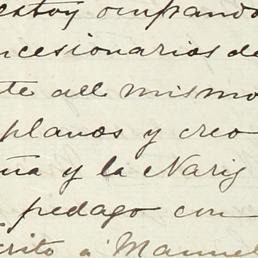 estoy ocupando
ncesionarios de
te all mismo
planos y creo
ña y la Narig
pedago con
crito a Manuel